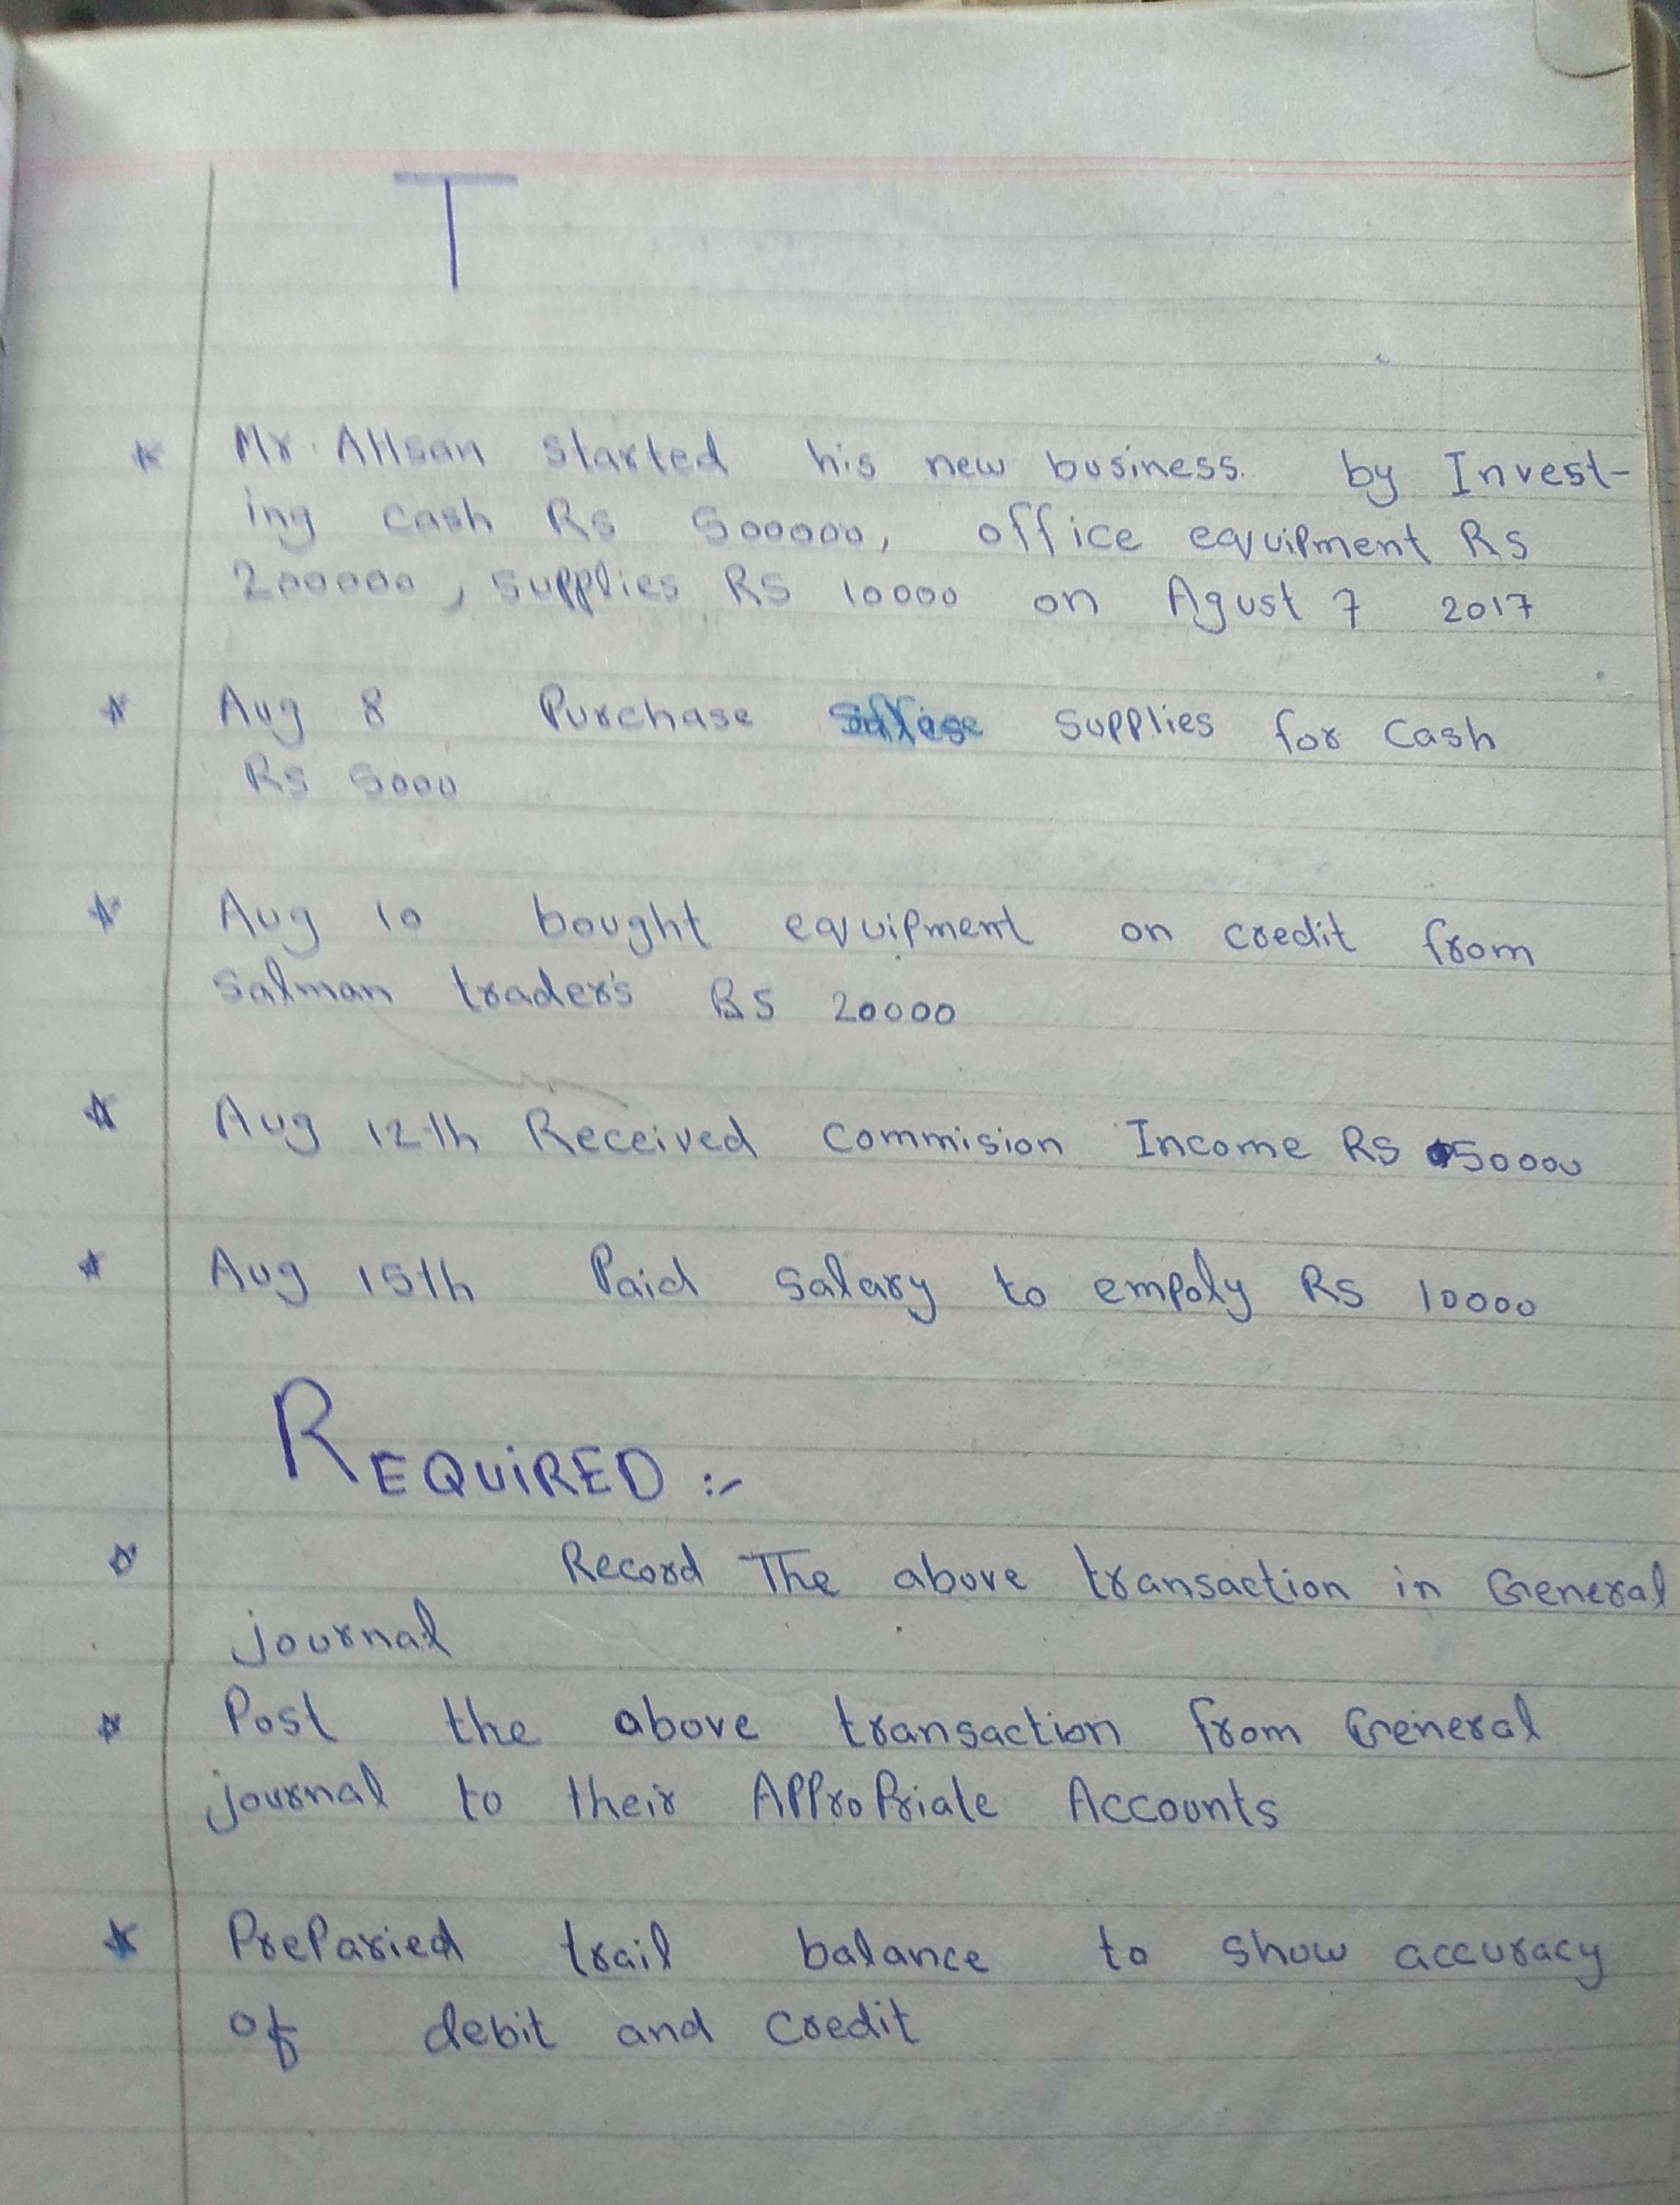 T
Mr. AHsan started his new business. by Invest-
ing cash Rs 500000, office equipment Rs
200000, supplies RS 10000 on Agust 7 2017
Aug 8 Purchase office supplies for cash
Rs 5000
Aug 10 bought equipment on credit from
Salman trader's RS 20000
Aug 12th Received commision Income RS 50000
Aug 15th Paid salary to empoly RS 10000
REQUiRED :-
Record The above transaction in General
journal
Post the above transaction from General
journal to their APProPriate Accounts
PrePuried trail balance to show accuracy
of debit and credit